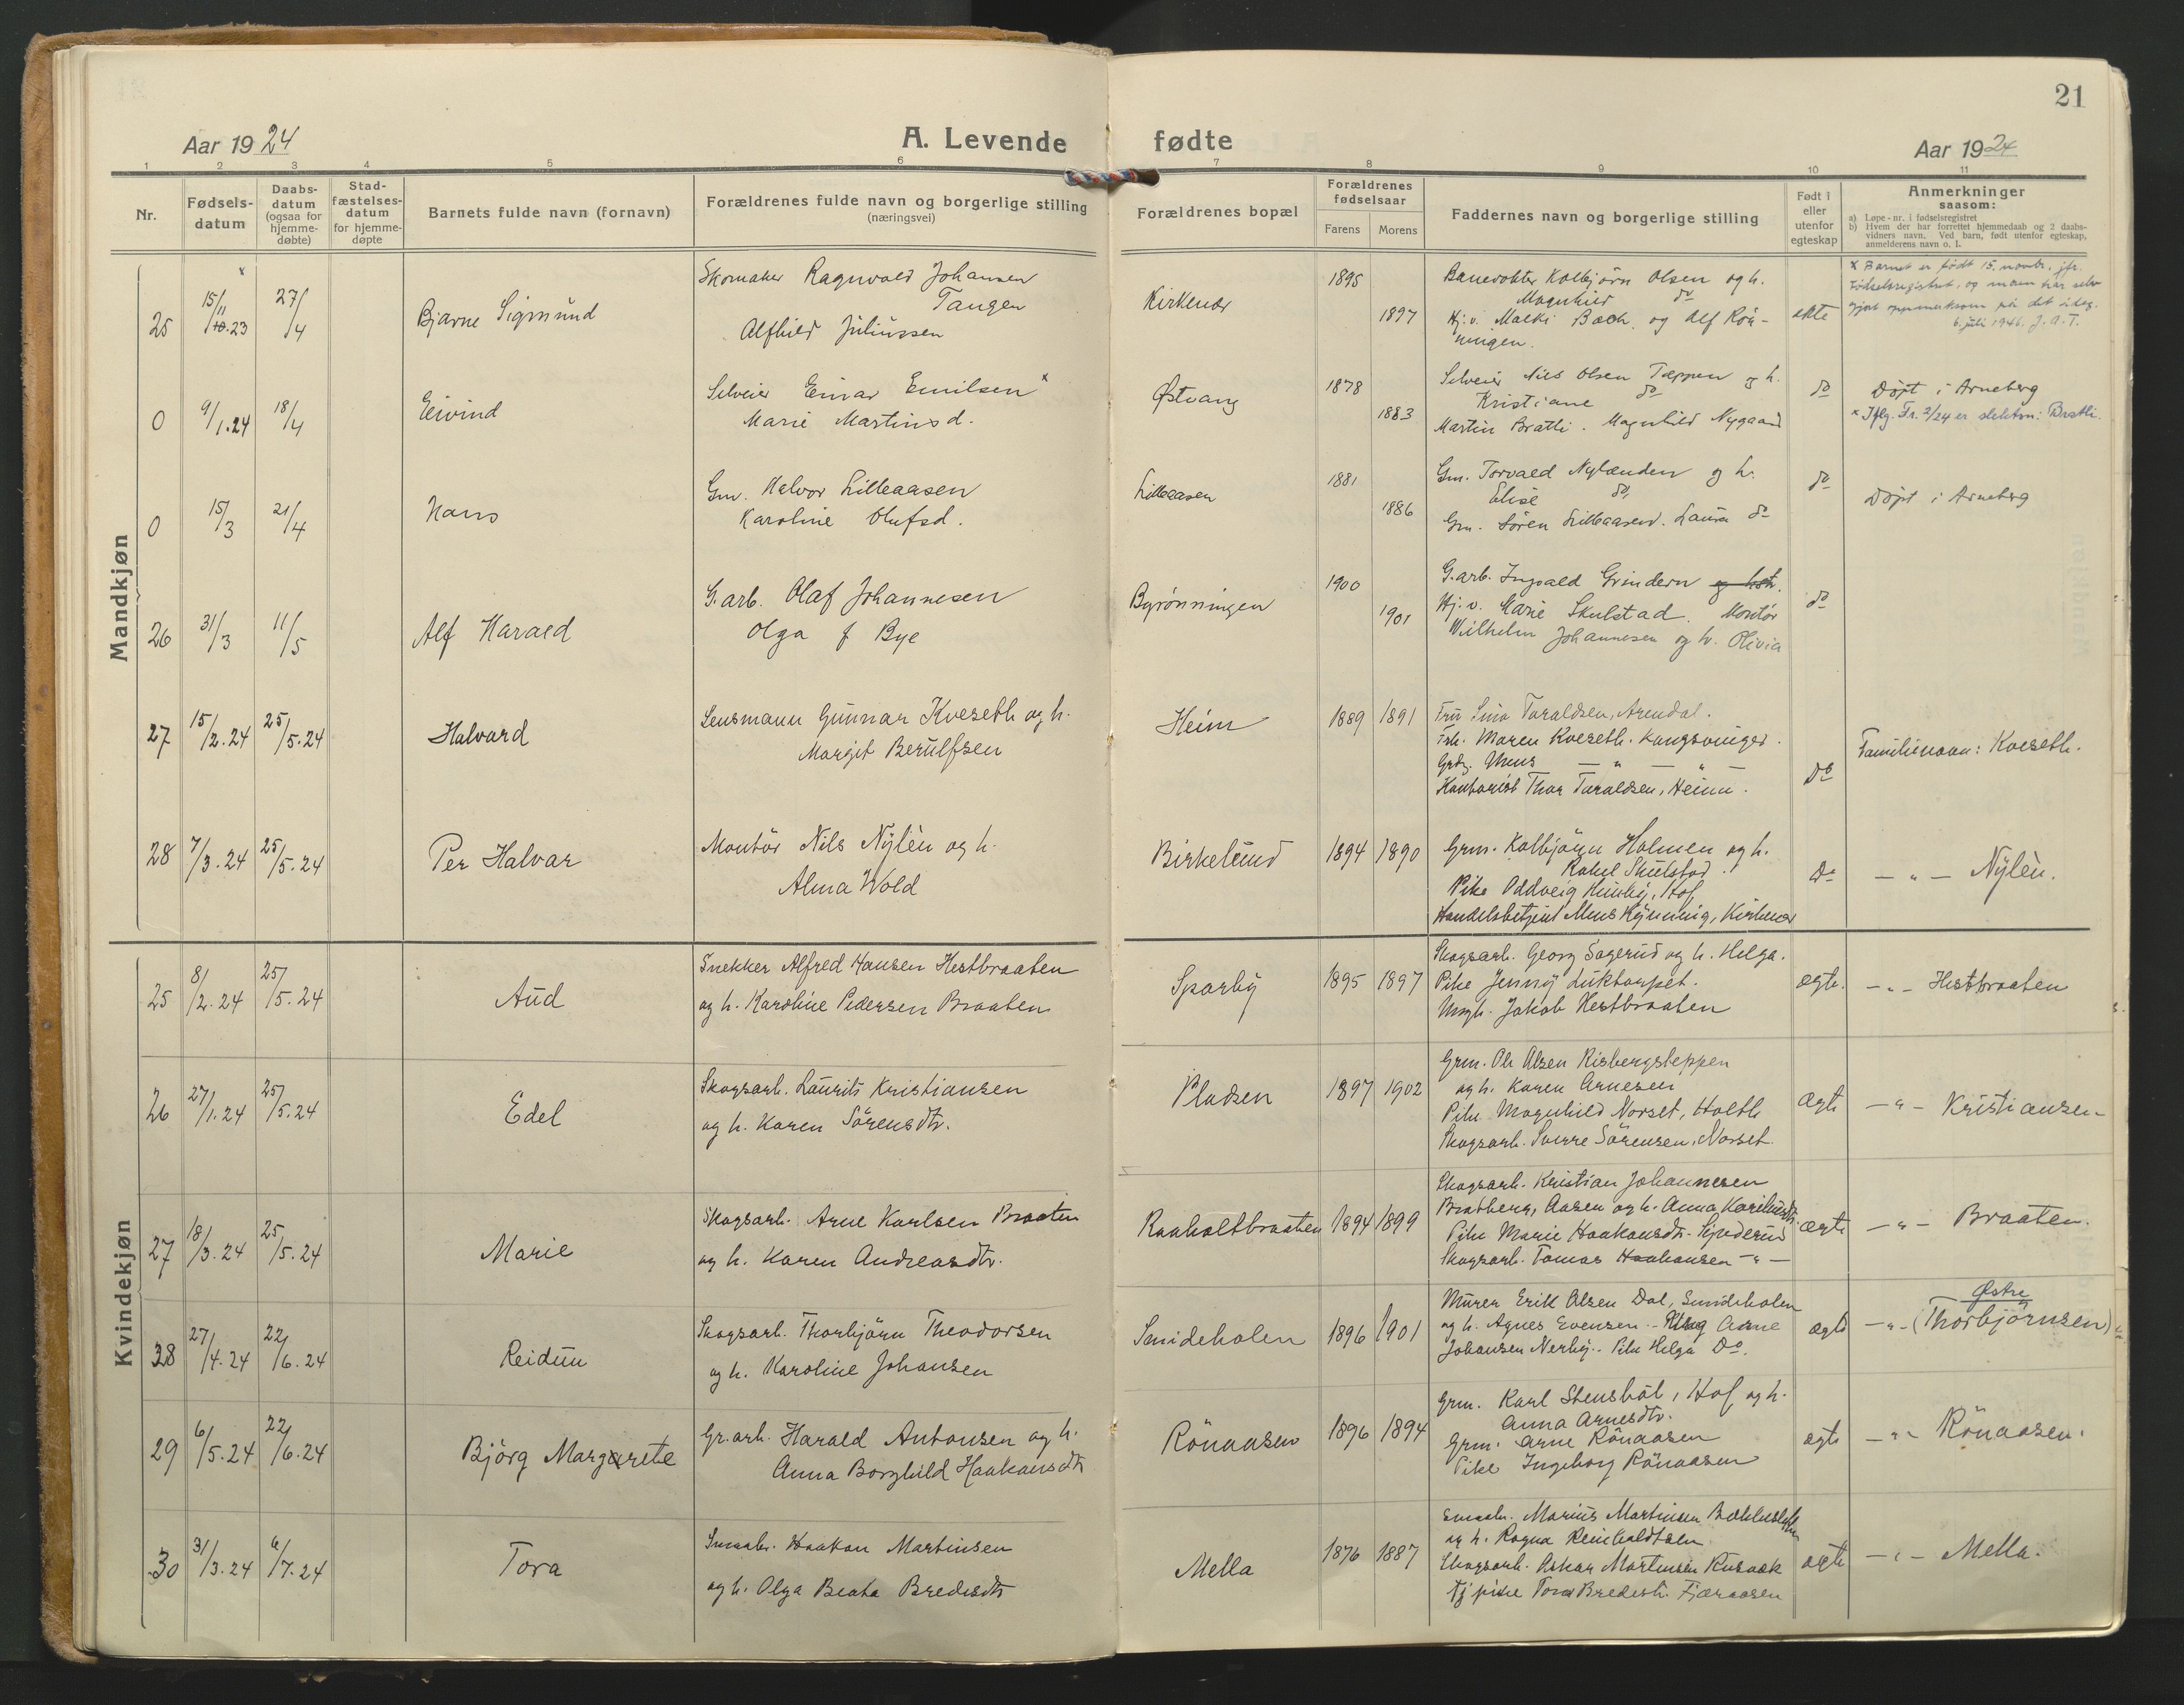 21
Aar 1924
A. Levende fødte
Aar 1924
1 2 3 4 5 6 7 8 9 10 11
Nr.
Fødsels-
datum
Daabs-
datum
(ogsaa for
hjemme-
døbte)
Stad-
fæstelses-
datum
for hjemme-
døpte
Barnets fulde navn (fornavn)
Forældrenes fulde navn og borgerlige stilling
(næringsvei)
Forældrenes bopæl
Forældrenes
fødselsaar
Farens Morens
Faddernes navn og borgerlige stilling
Født i
eller
utenfor
egteskap
Anmerkninger
saasom:
a) Løpe-nr. i fødselsregistret
b) Hvem der har forrettet hjemmedaab og 2 daabs-
vidners navn. Ved barn, født utenfor egteskap,
anmelderens navn o. l.
Mandkjøn
25 15/11 10.23 x 27/4 Bjarne Sigmund
Skomaker Ragnvald Johansen
Tangen
Alfhild Juliussen
Kirkenær 1895 1897
Banevokter Kolbjørn Olsen og h.
Magnhild do
Hj.v. Malki Bach. og Alf Røn-
ningen.
ekte
x Barnet er født 15. novbr. jfr.
fødselsregistret, og mann har selv
gjort oppmerksom på det idag.
6. juli 1946. J.A.T.
0 9/1.24 18/4 Eivind
Selveier Einar Emilsen x
Marie Martinsd.
Østvang 1878 1883
Selveier Nils Olsen Tæppen og h.
Kristiane do
Martin Bratli. Magnhild Nygaard
do
Døpt i Arneberg
x Iflg. Fr. 2/24 er slektsn: Bratli.
0 15/3 21/4 Hans
Gm. Halvor Lilleaasen
Karoline Olufsd.
Lilleaasen 1881 1886
Gm. Torvald Nylænden og h.
Elise do
Gm. Søren Lilleaasen. Laura do
do
Døpt i Arneberg
26 31/3 11/5 Alf Harald
G.arb. Olaf Johannesen
Olga f Bye
Byrønningen 1900 1901
G.arb. Ingvald Grindern og hst.
Hj.v. Marie Skulstad. Montør
Wilhelm Johannesen og h. Olivia
do
27 15/2.24 25/5.24 Halvard
Lensmann Gunnar Kveseth og h.
Margit Berulfsen
Heim 1889 1891
Fru Lina Taraldsen, Arendal.
Frk. Maren Kveseth. Kongsvinger.
Grbr. Mens — " — " —
Kontorist Thor Taraldsen, Heim.
Do
Familienavn: Kveseth.
28 7/3.24 25/5.24 Per Halvar
Montör Nils Nylèn og h.
Alma Wold
Birkelund 1894 1890
Grm. Kolbjörn Holmen og h.
Rakel Skulstad.
Pike Oddveig Huuby, Hof
Handelsbetjent Mens Rønning, Kirkenær
Do
— " — Nylèn.
Kvindekjøn
25 8/2.24 25/5.24 Aud
Snekker Alfred Hansen Hestbraaten
og h. Karoline Pedersen Braaten
Sparby 1895 1897
Skogsarb. Georg Sagerud og h. Helga.
Pike Jenny Luktorpet.
Ungk. Jakob Hestbraaten
ægte.
— " — Hestbraaten
26 27/1.24 25/5.24 Edel
Skogsarb. Laurits Kristiansen
og h. Karen Sörensdtr.
Pladsen 1897 1902
Grm. Ole Olsen Risbergsteppen
og h. Karen Arnesen
Pike Magnhild Norset, Holth
Skogsarb. Sverre Sörensen, Norset.
Ægte
— " — Kristiansen
27 18/3.24 25/5.24 Marie
Skogsarb. Arne Karlsen Braaten
og h. Karen Andreasdtr.
Raaholtbraaten 1894 1899
Skogsarb. Kristian Johannesen
Bratberg, Aasen og h. Anna Kareliusdtr.
Pike Marie Haakonsdtr. Gjuderud
Skogsarb. Tomas Haakonsen — " —
ægte
— " — Braaten.
28 27/4.24 22/6.24 Reidun
Skogsarb. Thorbjörn Theodorsen
og h. Karoline Johansen
Smideholen 1896 1901
Murer Erik Olsen Dal, Smideholen
og h. Agnes Evensen. Arne
Johansen Nerby. Pike Helga Do.
ægte
Østre
— " — (Thorbjörnsen)
29 6/5.24 22/6.24 Björg Margarete
Gr.arb. Harald Antonsen og h.
Anna Borghild Haakonsdtr
Rönaasen 1896 1894
Grm. Karl Stenshöl, Hof og h.
Anna Arnesdtr.
Grm. Arne Rönaasen
Pike Ingeborg Rönaasen
ægte
— " — Rönaasen.
30 31/3.24 6/7.24 Tora
Smaabr. Haakon Martinsen
og h. Olga Beata Bredesdtr
Mella 1876 1887
Smaabr. Marius Martinsen
og h. Ragna Reinholdtsen
Skogsarb. Oskar Martinsen Kusvæk
Tj pike Tora Bredesdtr. Fjæraasen
ægte
— " — Mella.